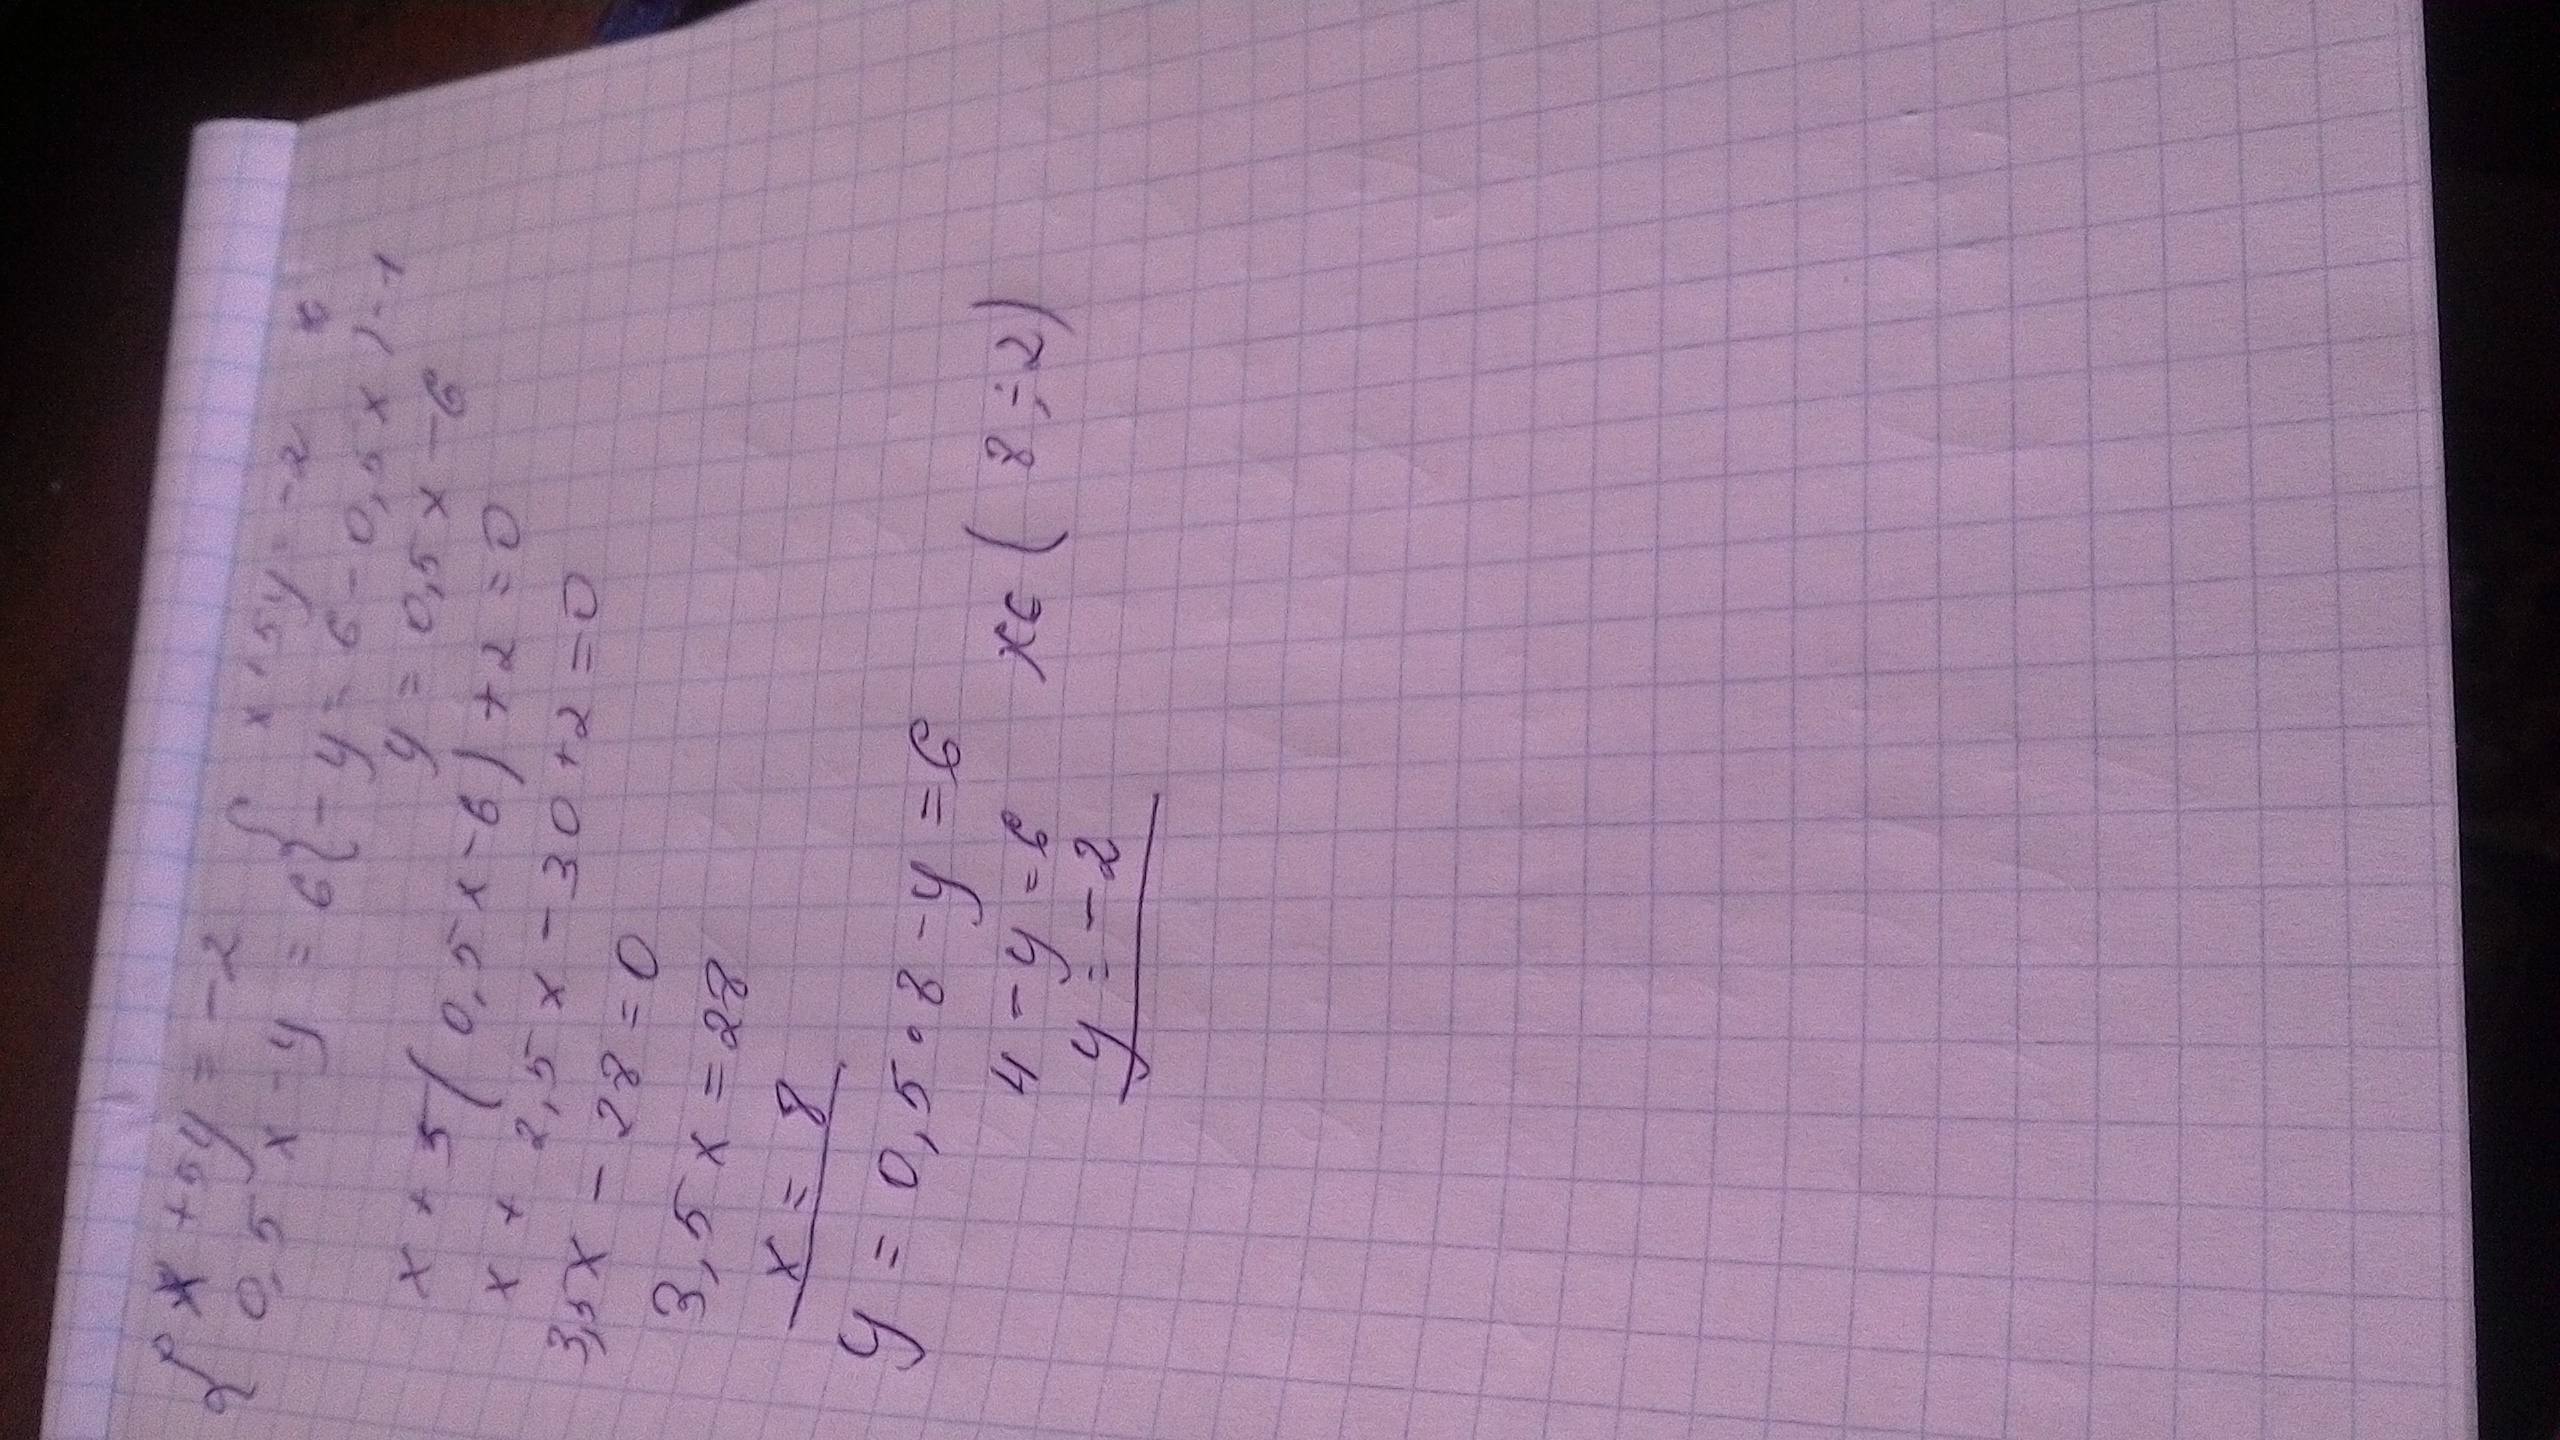 { x + 5y = -2 { x + 5y = -2
0,5x - y = 6 { -y = 6 - 0,5x | · -1
y = 0,5x - 6
x + 5(0,5x - 6) + 2 = 0
x + 2,5x - 30 + 2 = 0
3,5x - 28 = 0
3,5x = 28
x = 8
y = 0,5 · 8 - y = 6
4 - y = 6 x ∈ (8; -2)
y = -2